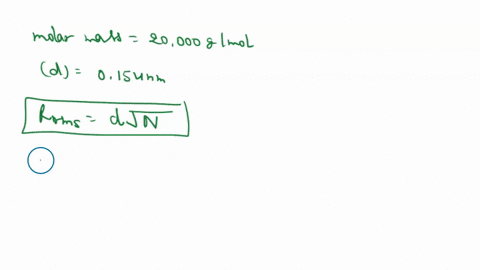 molar mass = 20,000 g/mol
(d) = 0.154nm
Rrms = d√N